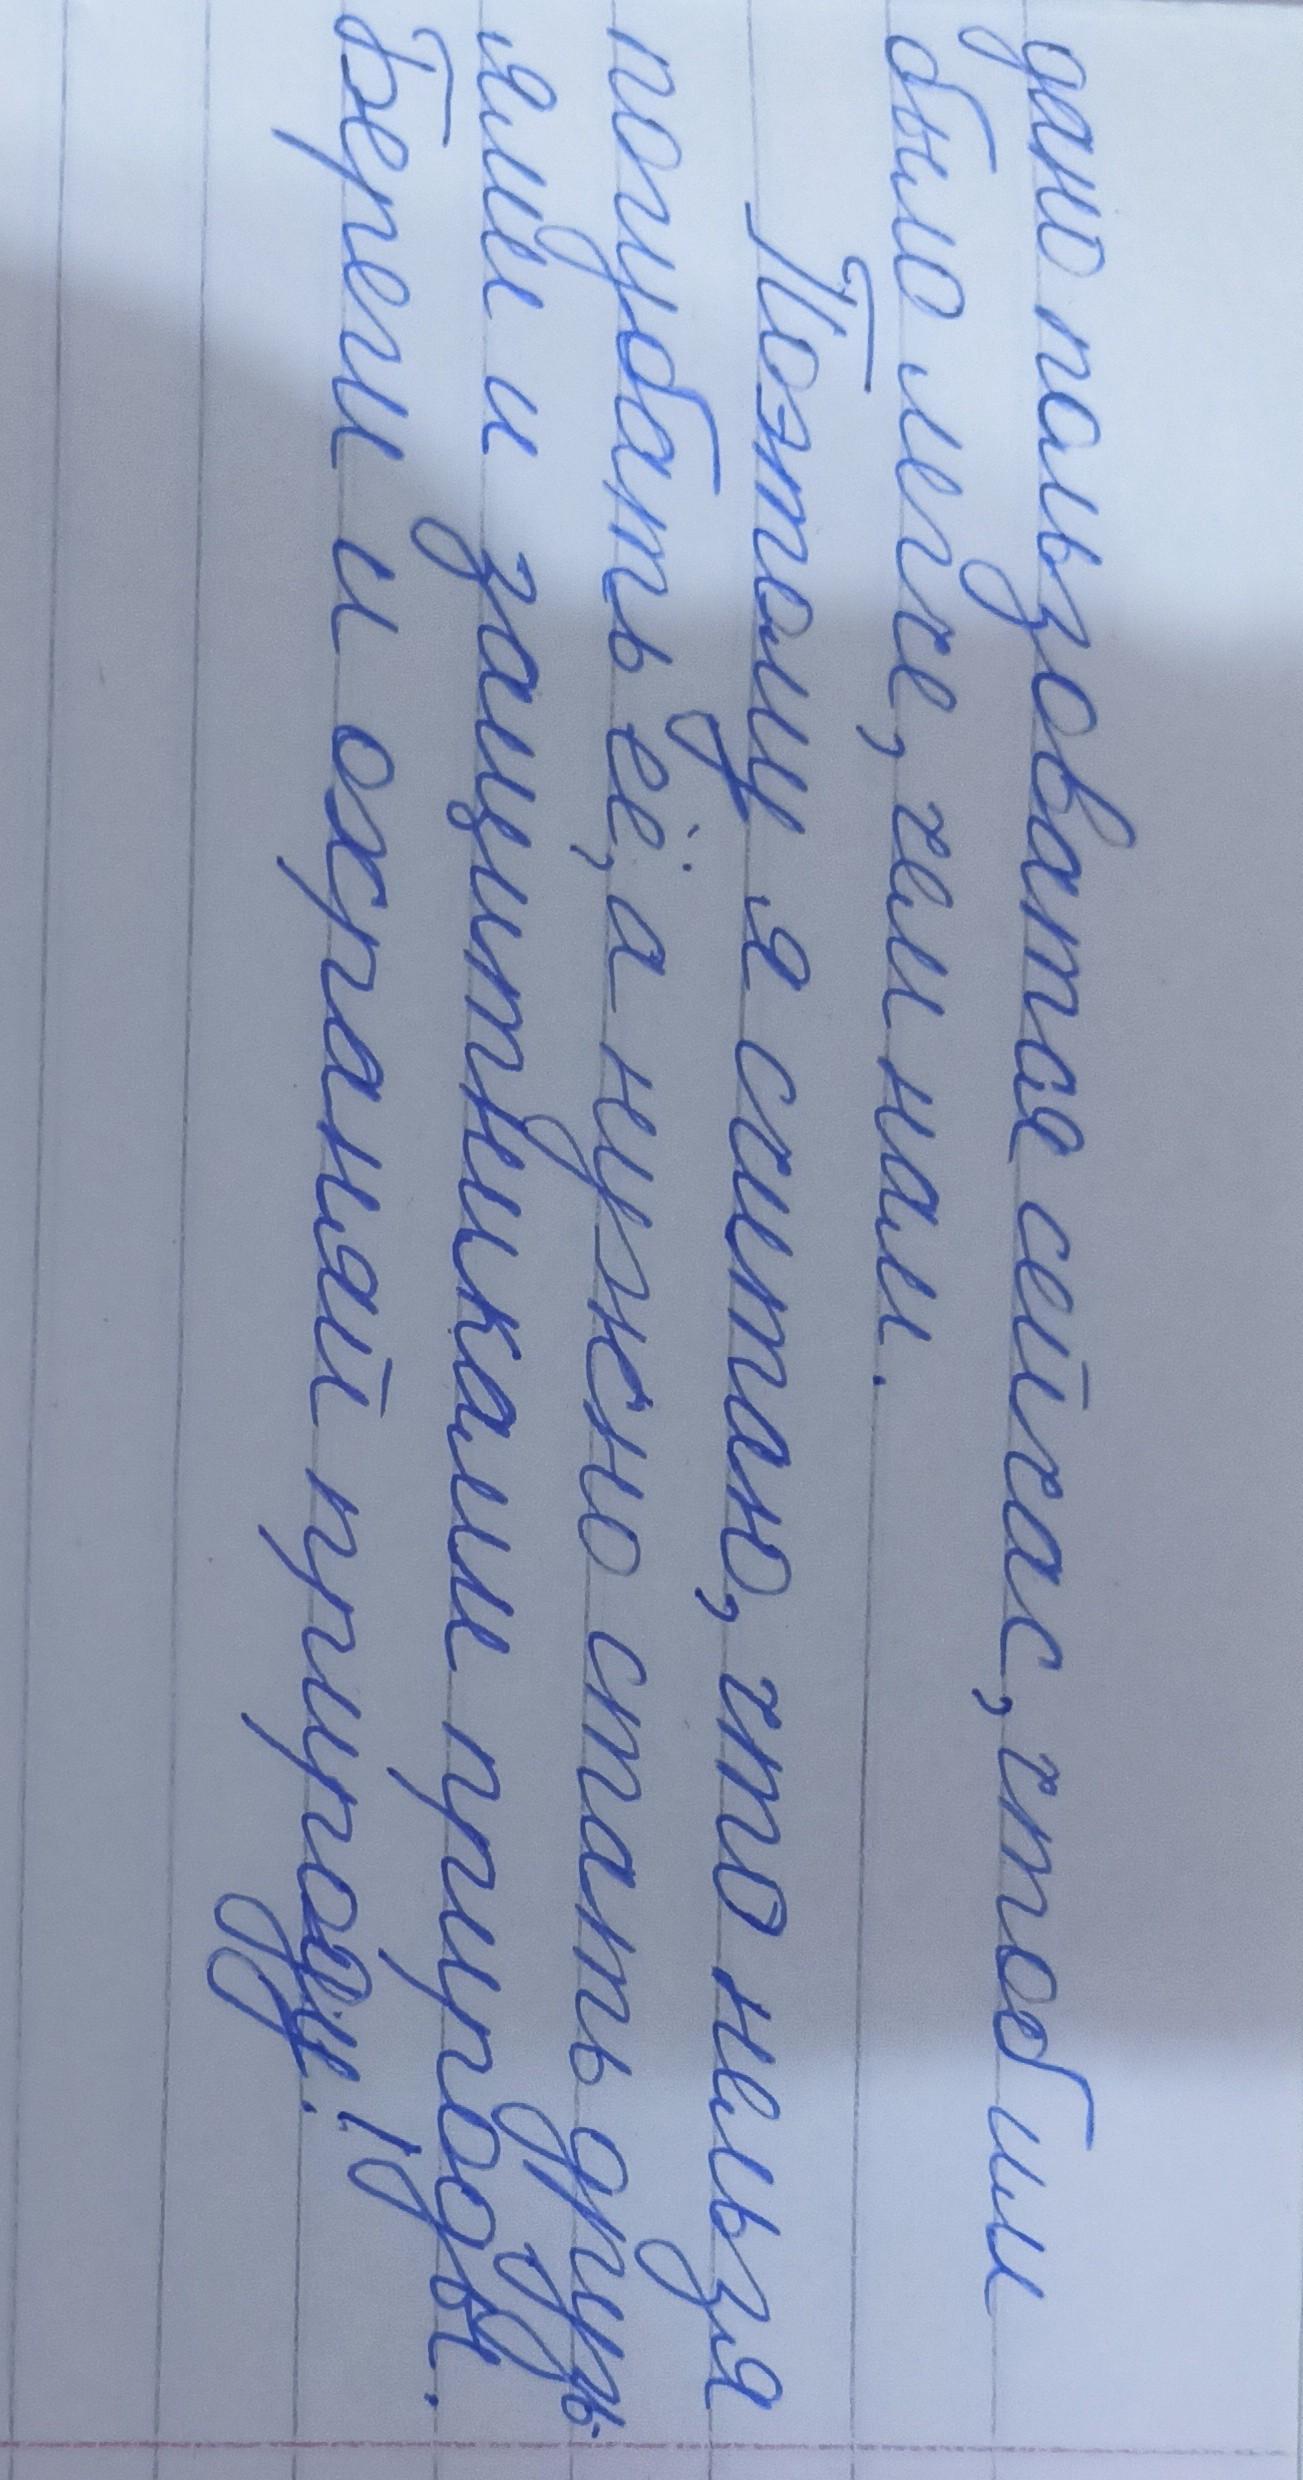 дано пользоватся сейчас, чтоб им
было легче, чем нам.
Поэтому я считаю, что нельзя
погубать её, а нужно стать друзь-
ями и защитниками природы.
Береги и охраняй природу!